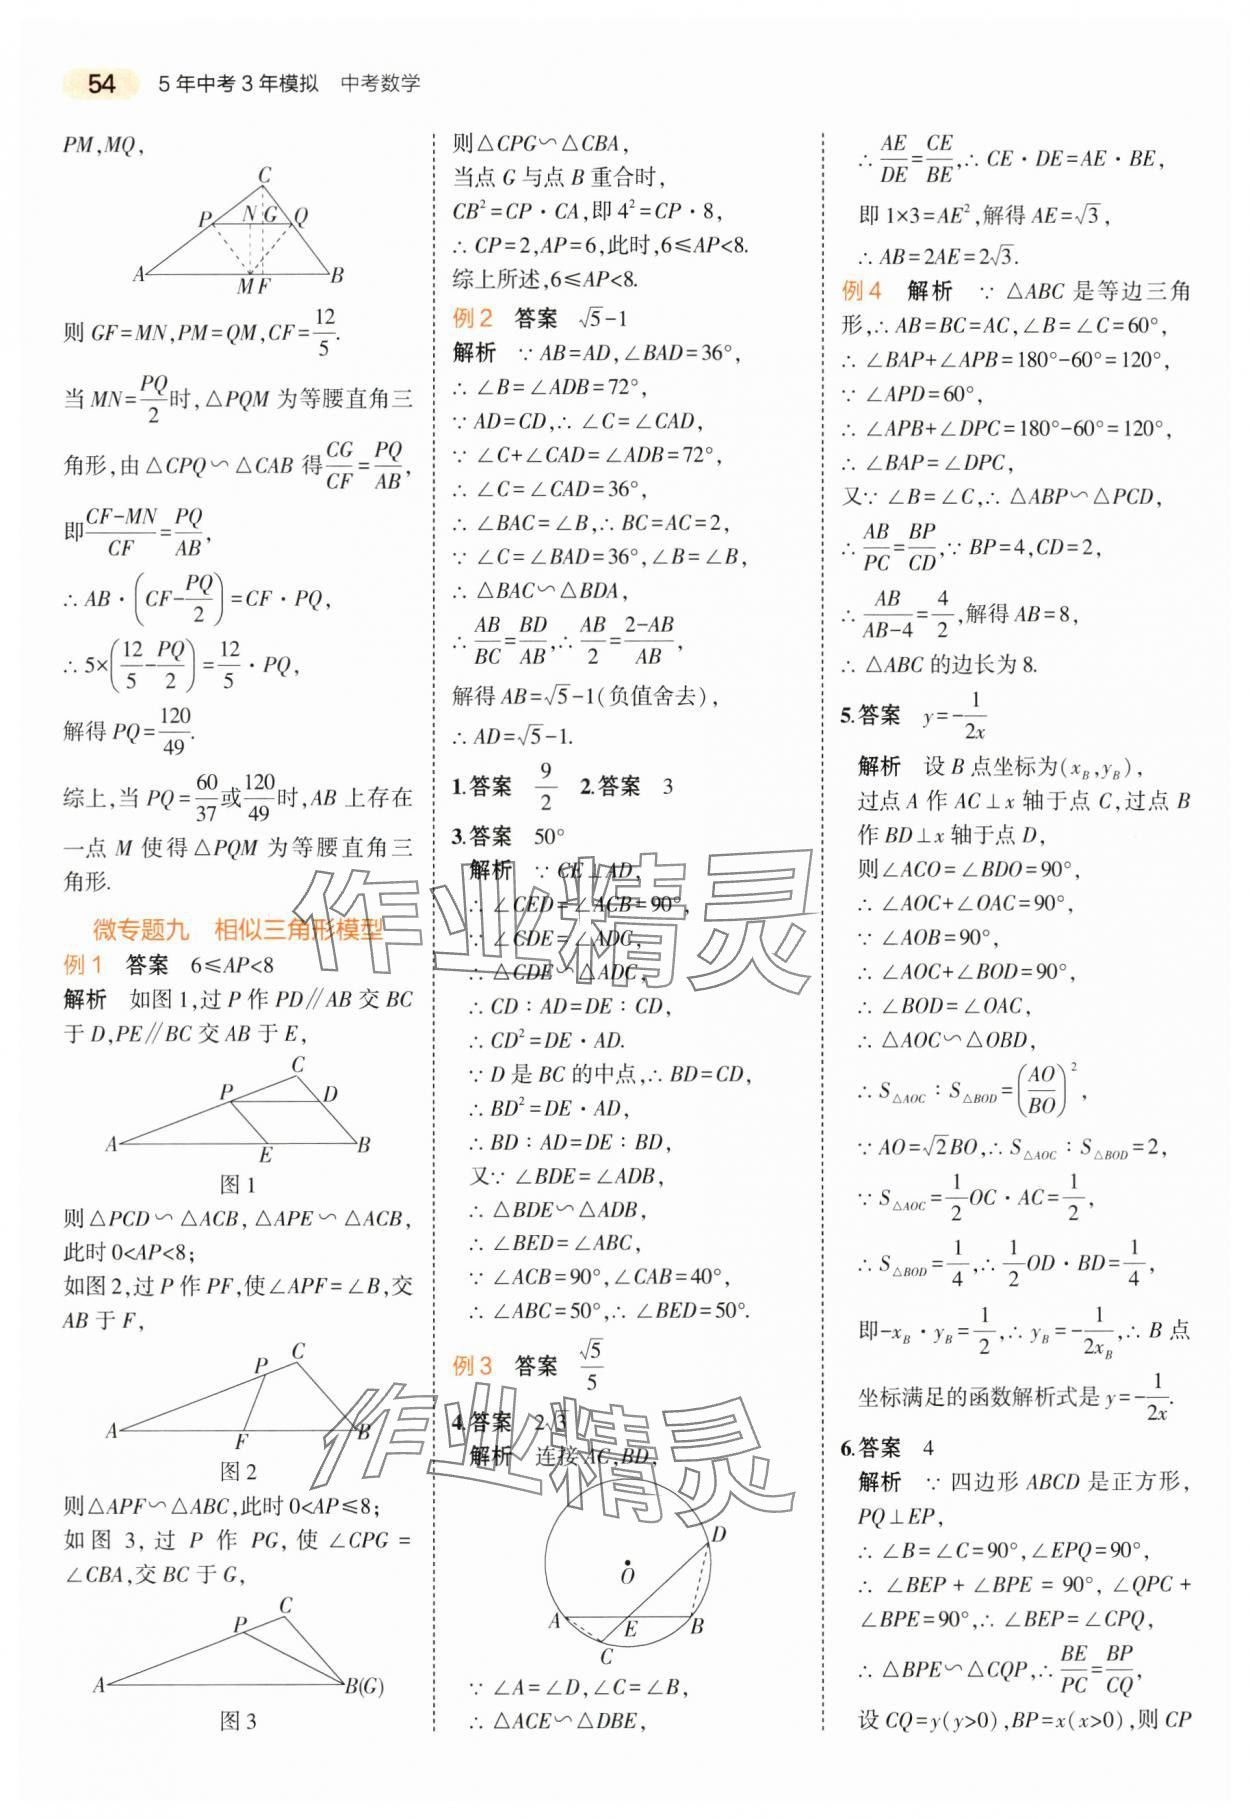 54 5年中考3年模拟 中考数学
PM,MQ,
C
P N G Q
A M F B
则 GF=MN,PM=QM,CF=12/5.
当 MN=PQ/2时,△PQM 为等腰直角三
角形,由△CPQ∽△CAB 得CG/CF=PQ/AB,
即(CF-MN)/CF=PQ/AB,
∴AB·(CF-PQ/2)=CF·PQ,
∴5×(12/5-PQ/2)=12/5·PQ,
解得 PQ=120/49.
综上,当 PQ=60/37或120/49时,AB 上存在
一点 M 使得△PQM 为等腰直角三
角形.
微专题九 相似三角形模型
例1 答案 6≤AP<8
解析 如图1,过 P 作 PD∥AB 交 BC
于 D,PE∥BC 交 AB 于 E,
C
P D
A E B
图1
则△PCD∽△ACB,△APE∽△ACB,
此时 0<AP<8;
如图2,过 P 作 PF,使∠APF=∠B,交
AB 于 F,
C
P
A F B
图2
则△APF∽△ABC,此时 0<AP≤8;
如图3,过 P 作 PG,使∠CPG=
∠CBA,交 BC 于 G,
C
P
A B(G)
图3
则△CPG∽△CBA,
当点 G 与点 B 重合时,
CB²=CP·CA,即 4²=CP·8,
∴CP=2,AP=6,此时,6≤AP<8.
综上所述,6≤AP<8.
例2 答案 √5-1
解析 ∵AB=AD,∠BAD=36°,
∴∠B=∠ADB=72°,
∵AD=CD,∴∠C=∠CAD,
∵∠C+∠CAD=∠ADB=72°,
∴∠C=∠CAD=36°,
∴∠BAC=∠B,∴BC=AC=2,
∵∠C=∠BAD=36°,∠B=∠B,
∴△BAC∽△BDA,
∴AB/BC=BD/AB,∴AB/2=(2-AB)/AB,
解得 AB=√5-1(负值舍去),
∴AD=√5-1.
1.答案 9/2 2.答案 3
3.答案 50°
解析 ∵CE⊥AD,
∴∠CED=∠ACB=90°,
∵∠CDE=∠ADC,
∴△CDE∽△ADC,
∴CD∶AD=DE∶CD,
∴CD²=DE·AD.
∵D 是 BC 的中点,∴BD=CD,
∴BD²=DE·AD,
∴BD∶AD=DE∶BD,
又∵∠BDE=∠ADB,
∴△BDE∽△ADB,
∴∠BED=∠ABC,
∵∠ACB=90°,∠CAB=40°,
∴∠ABC=50°,∴∠BED=50°.
例3 答案 √5/5
4.答案 2√3
解析 连接 AC,BD,
D
O
A E B
C
∵∠A=∠D,∠C=∠B,
∴△ACE∽△DBE,
∴AE/DE=CE/BE,∴CE·DE=AE·BE,
即 1×3=AE²,解得 AE=√3,
∴AB=2AE=2√3.
例4 解析 ∵△ABC 是等边三角
形,∴AB=BC=AC,∠B=∠C=60°,
∴∠BAP+∠APB=180°-60°=120°,
∵∠APD=60°,
∴∠APB+∠DPC=180°-60°=120°,
∴∠BAP=∠DPC,
又∵∠B=∠C,∴△ABP∽△PCD,
∴AB/PC=BP/CD,∵BP=4,CD=2,
∴AB/(AB-4)=4/2,解得 AB=8,
∴△ABC 的边长为 8.
5.答案 y=-1/2x
解析 设 B 点坐标为(x_B,y_B),
过点 A 作 AC⊥x 轴于点 C,过点 B
作 BD⊥x 轴于点 D,
则∠ACO=∠BDO=90°,
∴∠AOC+∠OAC=90°,
∵∠AOB=90°,
∴∠AOC+∠BOD=90°,
∴∠BOD=∠OAC,
∴△AOC∽△OBD,
∴S△AOC∶S△BOD=(AO/BO)²,
∵AO=√2BO,∴S△AOC∶S△BOD=2,
∵S△AOC=1/2OC·AC=1/2,
∴S△BOD=1/4,∴1/2OD·BD=1/4,
即-x_B·y_B=1/2,∴y_B=-1/2x_B,∴B 点
坐标满足的函数解析式是 y=-1/2x.
6.答案 4
解析 ∵四边形 ABCD 是正方形,
PQ⊥EP,
∴∠B=∠C=90°,∠EPQ=90°,
∴∠BEP+∠BPE=90°,∠QPC+
∠BPE=90°,∴∠BEP=∠CPQ,
∴△BPE∽△CQP,∴BE/PC=BP/CQ,
设 CQ=y(y>0),BP=x(x>0),则 CP
作业精灵
作业精灵